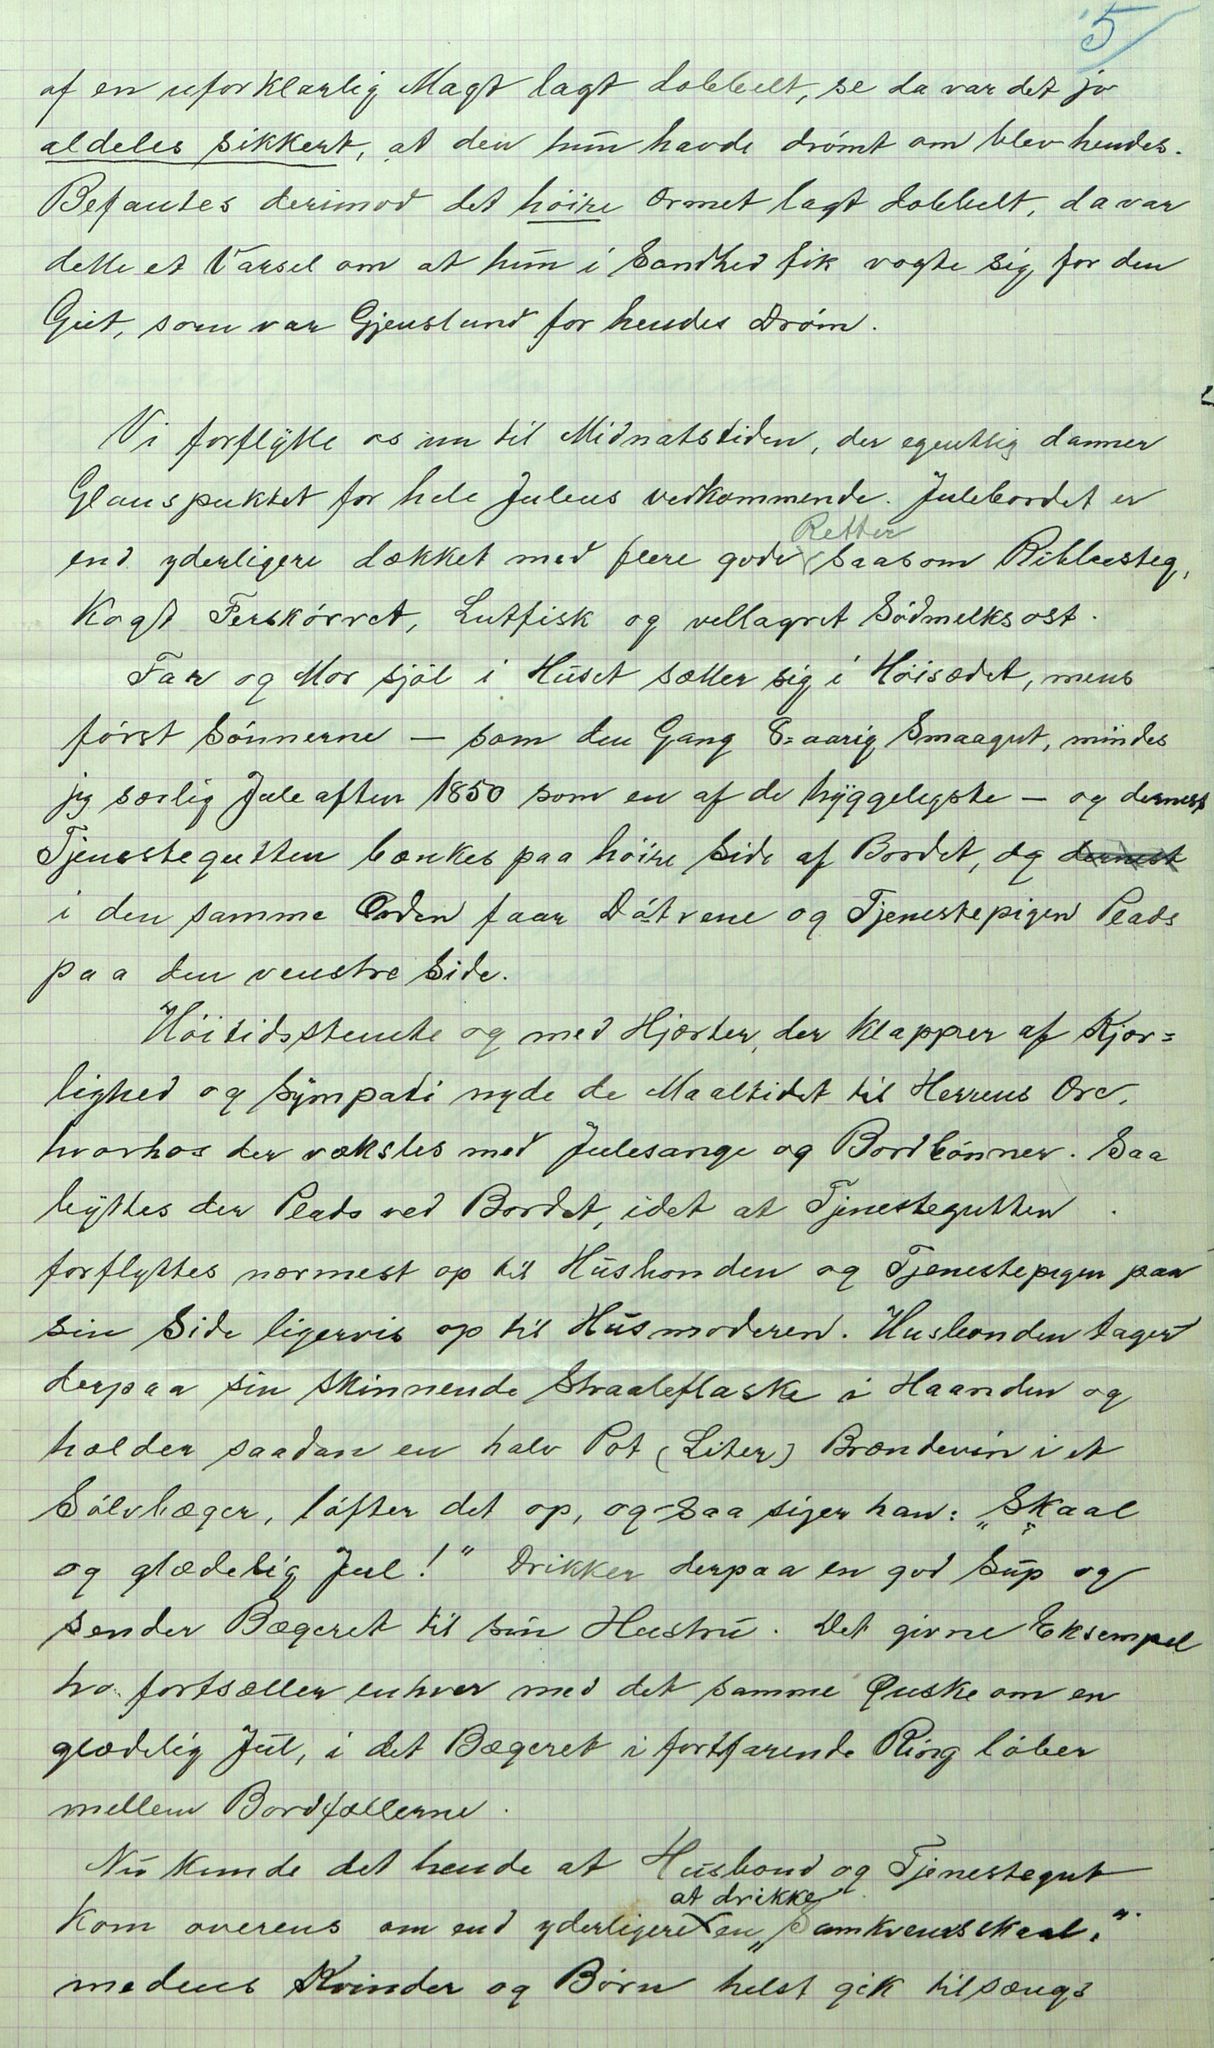 5
af en uforklarlig Magt lagt dobbelt, se da var det jo
aldeles sikkert, at den hun havde drömt om blev hendes.
Befantes derimod det höire Ærmet lagt dobbelt, da var
dette et Varsel om at hun i Sandhed fik vogte sig for den
Gut, som var Gjenstand for hendes Dröm.
Vi forflytte os nu til Midnatstiden, der egentlig danner
Glanspuktet for hele Julens vedkommende. Julebordet er
Retter
end yderligere dækket med flere gode saasom Ribbesteg,
Kogt Ferskörret, Lutfisk og vellagret Södmelksost.
Far og Mor sjöl i Huset sætter sig i Höisædet, mens
först Sönnerne — som den Gang 8=aarig Smaagut, mindes
jeg særlig Jule aften 1850 som en af de hyggeligste — og dernest
Tjenestegutten bænkes paa höire Side af Bordet, og dernest
i den samme Orden faar Döttrene og Tjenestepigen Plads
paa den venstre Side.
Höitidsstemte og med Hjærter, der klapper af Kjær=
lighed og Sympati nyde de Maaltidet til Herrens Ære,
hvorhos der væksles med Julesange og Bordbönner. Saa
byttes der Plads ved Bordet, idet at Tjenestegutten
forflyttes nærmest op til Husbonden og Tjenestepigen paa
sin Side ligervis op til Husmoderen. Husbonden tager
derpaa sin skinnende Straaleflaske i Haanden og
hælder saadan en halv Pot (Liter) Brændevin i et
Sölvbæger, löfter det op, og saa siger han: „Skaal
og glædelig Jul!" Drikker derpaa en god Sup og
sender Bægeret til sin Hustru. Det givne Eksempel
fortsætter enhver med det samme Ønske om en
glædelig Jul, i det Bægeret i fortfarende Ring löber
mellem Bordfællerne.
Nu kunde det hende at Husbond og Tjenestegut
at drikke
kom overens om end yderligere en „Samkvemsskaal",
medens Kvinder og Börn helst gik tilsængs